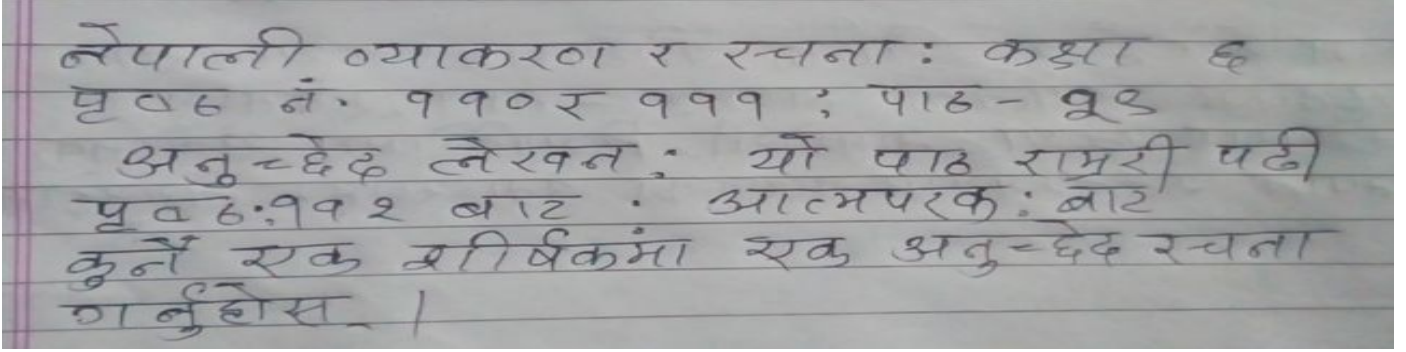 नेपाली व्याकरण र रचना : कक्षा ६
पृष्ठ नं. ११० र १११ ; पाठ - १९
अनुच्छेद लेखन : यो पाठ रामरी पढी
पृष्ठ ११२ बाट . आत्मपरक : बाट
कुनै एक शीर्षकमा एक अनुच्छेद रचना
गर्नुहोस् ।